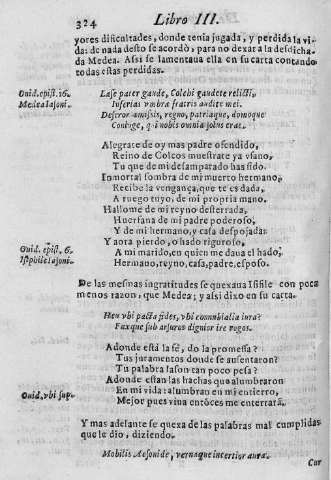 324 Libro III.
yores dificultades, donde tenia jugada, y perdida la vi-
da: de nada desto se acordò, para no dexar a la desdicha-
da Medea. Assi se lamentaua ella en su carta contando
todas estas perdidas.
Ouid. epist. 16.
Medea Iasoni.
Læse pater gaude, Colchi gaudete relicti,
Inferias vmbræ fratris audite mei.
Deseror amissis, regno, patriaque, domoque
Coniuge, qui nobis omnia solus erat.
Alegrate de oy mas padre ofendido,
Reino de Colcos muestrate ya vfano,
Tu que de mi desamparado has sido.
Inmortal sombra de mi muerto hermano,
Recibe la vengança, que te es dada,
A ruego tuyo, de mi propria mano.
Hallome de mi reyno desterrada,
Huersana de mi padre poderoso,
Y de mi hermano, y casa despojada:
Y aora pierdo, o hado riguroso,
A mi marido, en quien me daua el hado,
Hermano, reyno, casa, padre, esposo.
Ouid. epist. 6.
Isiphile Iasoni.
De las mesmas ingratitudes se quexaua Isifile con poca
menos razon: que Medea; y assi dixo en su carta.
Heu vbi pacta fides, vbi connubialia iura?
Faxque sub arsuros dignior ire rogos.
Adonde està la fè, do la promessa?
Tus juramentos donde se ausentaron?
Tu palabra Iason tan poco pesa?
Adonde estan las hachas que alumbraron
Ouid. vbi sup.
En mi vida: alumbran en mi entierro,
Mejor pues vna entõces me enterrarà.
Y mas adelante se quexa de las palabras mal cumplidas
que le dio, diziendo.
Mobilis Aesonide, vernaque incertior aura.
Cur